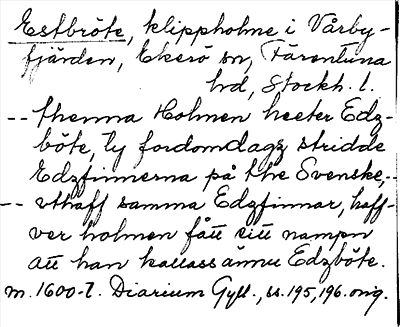 Estbröte, klippholme i Vårby-
fjärden, Ekerö sn, Färentuna
hd, Stockh. l.
-- thenna Holmen heeter Edz-
böte, ty fordomdagz stridde
Edzfinnerna på the Svenske,--
-- vthaff samma Edzfinnar, haff-
ver holmen fått sitt nampn
att han kallass ännu Edzböte.
m. 1600-t. Diarium Gyll., ss. 195, 196. orig.